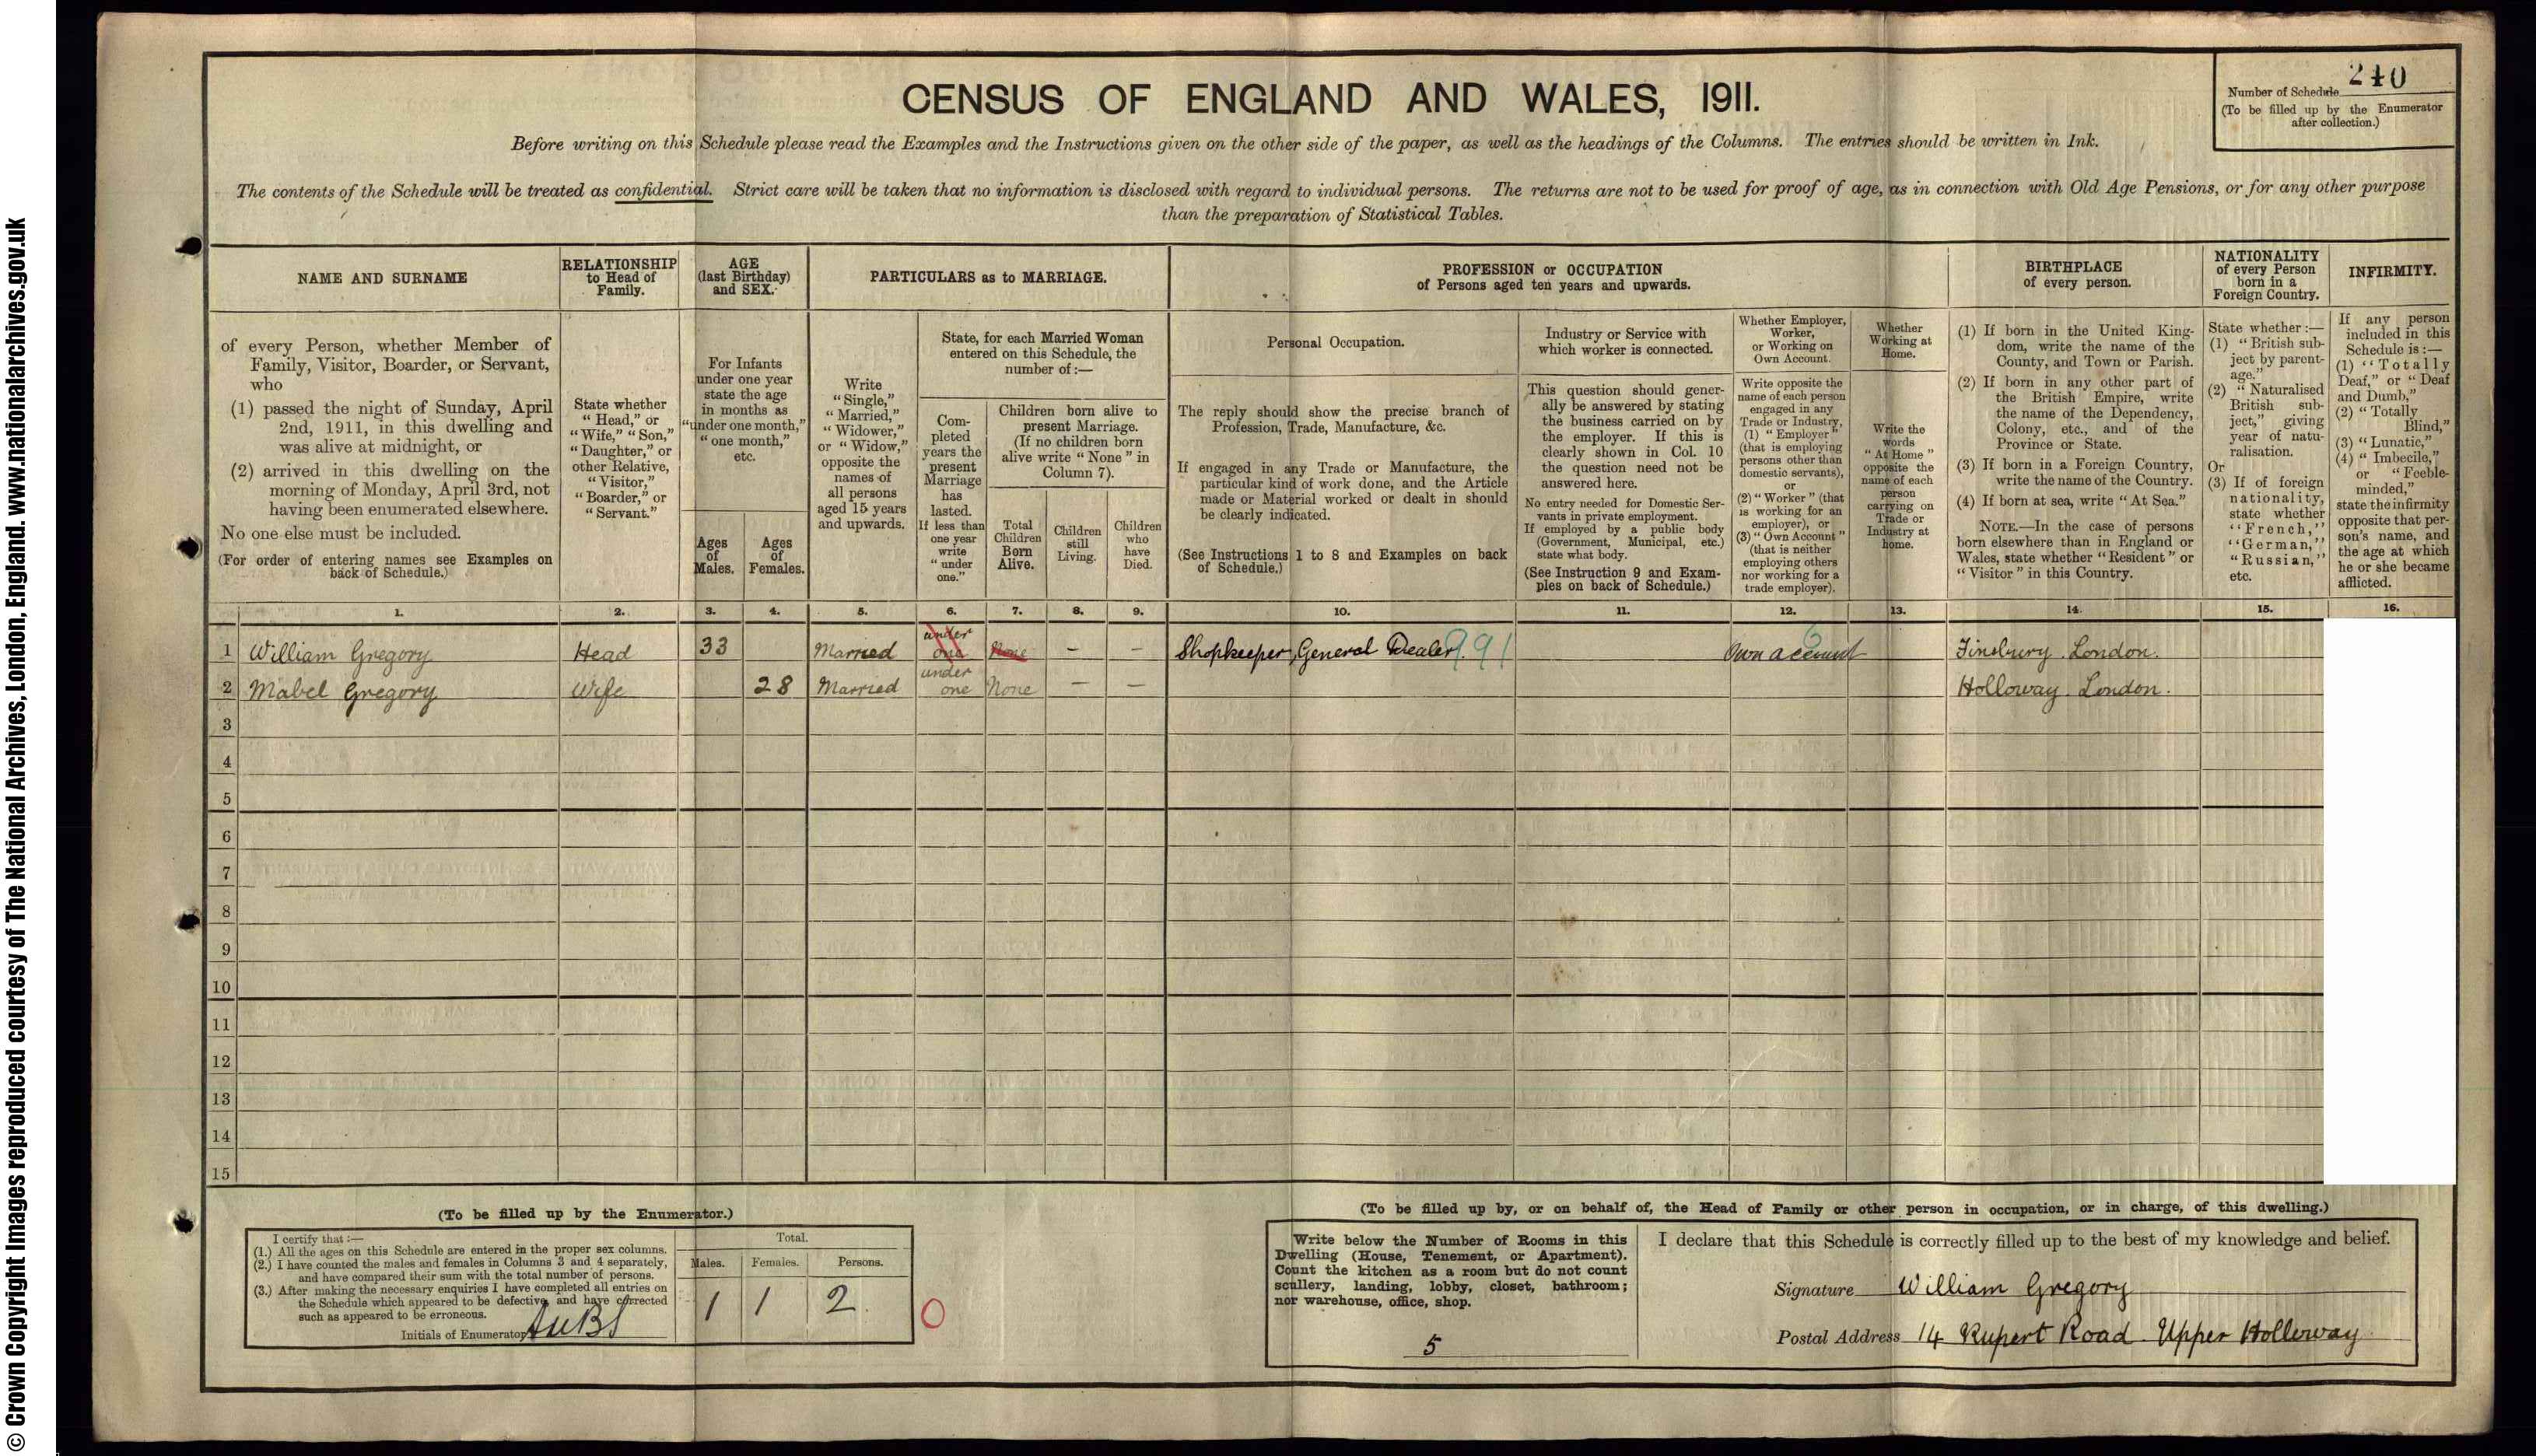 © Crown Copyright Images reproduced courtesy of The National Archives, London, England. www.nationalarchives.gov.uk
CENSUS OF ENGLAND AND WALES, 1911.
Number of Schedule 240
(To be filled up by the Enumerator
after collection.)
Before writing on this Schedule please read the Examples and the Instructions given on the other side of the paper, as well as the headings of the Columns. The entries should be written in Ink.
The contents of the Schedule will be treated as confidential. Strict care will be taken that no information is disclosed with regard to individual persons. The returns are not to be used for proof of age, as in connection with Old Age Pensions, or for any other purpose
than the preparation of Statistical Tables.
NAME AND SURNAME
of every Person, whether Member of
Family, Visitor, Boarder, or Servant,
who
(1) passed the night of Sunday, April
2nd, 1911, in this dwelling and
was alive at midnight, or
(2) arrived in this dwelling on the
morning of Monday, April 3rd, not
having been enumerated elsewhere.
No one else must be included.
(For order of entering names see Examples on
back of Schedule.)
RELATIONSHIP
to Head of
Family.
State whether
"Head," or
"Wife," "Son,"
"Daughter," or
other Relative,
"Visitor,"
"Boarder," or
"Servant."
AGE
(last Birthday)
and SEX.
For Infants
under one year
state the age
in months as
"under one month,"
"one month,"
etc.
Ages
of
Males.
Ages
of
Females.
PARTICULARS as to MARRIAGE.
Write
"Single,"
"Married,"
"Widower,"
or "Widow,"
opposite the
names of
all persons
aged 15 years
and upwards.
State, for each Married Woman
entered on this Schedule, the
number of:—
Com-
pleted
years the
present
Marriage
has
lasted.
If less than
one year
write
"under
one."
Children born alive to
present Marriage.
(If no children born
alive write "None" in
Column 7).
Total
Children
Born
Alive.
Children
still
Living.
Children
who
have
Died.
PROFESSION or OCCUPATION
of Persons aged ten years and upwards.
Personal Occupation.
The reply should show the precise branch of
Profession, Trade, Manufacture, &c.
If engaged in any Trade or Manufacture, the
particular kind of work done, and the Article
made or Material worked or dealt in should
be clearly indicated.
(See Instructions 1 to 8 and Examples on back
of Schedule.)
Industry or Service with
which worker is connected.
This question should gener-
ally be answered by stating
the business carried on by
the employer. If this is
clearly shown in Col. 10
the question need not be
answered here.
No entry needed for Domestic Ser-
vants in private employment.
If employed by a public body
(Government, Municipal, etc.)
state what body.
(See Instruction 9 and Exam-
ples on back of Schedule.)
Whether Employer,
Worker,
or Working on
Own Account.
Write opposite the
name of each person
engaged in any
Trade or Industry,
(1) "Employer"
(that is employing
persons other than
domestic servants),
or
(2) "Worker" (that
is working for an
employer), or
(3) "Own Account"
(that is neither
employing others
nor working for a
trade employer).
Whether
Working at
Home.
Write the
words
"At Home"
opposite the
name of each
person
carrying on
Trade or
Industry at
home.
BIRTHPLACE
of every person.
(1) If born in the United King-
dom, write the name of the
County, and Town or Parish.
(2) If born in any other part of
the British Empire, write
the name of the Dependency,
Colony, etc., and of the
Province or State.
(3) If born in a Foreign Country,
write the name of the Country.
(4) If born at sea, write "At Sea."
NOTE.—In the case of persons
born elsewhere than in England or
Wales, state whether "Resident" or
"Visitor" in this Country.
NATIONALITY
of every Person
born in a
Foreign Country.
State whether:—
(1) "British sub-
ject by parent-
age."
(2) "Naturalised
British sub-
ject," giving
year of natu-
ralisation.
Or
(3) If of foreign
nationality,
state whether
"French,"
"German,"
"Russian,"
etc.
INFIRMITY.
If any person
included in this
Schedule is:—
(1) "Totally
Deaf," or "Deaf
and Dumb,"
(2) "Totally
Blind,"
(3) "Lunatic,"
(4) "Imbecile,"
or "Feeble-
minded,"
state the infirmity
opposite that per-
son's name, and
the age at which
he or she became
afflicted.
1. 2. 3. 4. 5. 6. 7. 8. 9. 10. 11. 12. 13. 14. 15. 16.
1 William Gregory Head 33 Married under one None – – Shopkeeper, General Dealer. 991 Own account 6 Finsbury London.
2 Mabel Gregory Wife 28 Married under one None – – Holloway London.
3
4
5
6
7
8
9
10
11
12
13
14
15
(To be filled up by the Enumerator.)
I certify that:—
(1.) All the ages on this Schedule are entered in the proper sex columns.
(2.) I have counted the males and females in Columns 3 and 4 separately,
and have compared their sum with the total number of persons.
(3.) After making the necessary enquiries I have completed all entries on
the Schedule which appeared to be defective, and have corrected
such as appeared to be erroneous.
Initials of Enumerator
Total.
Males. Females. Persons.
1 1 2
0
(To be filled up by, or on behalf of, the Head of Family or other person in occupation, or in charge, of this dwelling.)
Write below the Number of Rooms in this
Dwelling (House, Tenement, or Apartment).
Count the kitchen as a room but do not count
scullery, landing, lobby, closet, bathroom;
nor warehouse, office, shop.
5
I declare that this Schedule is correctly filled up to the best of my knowledge and belief.
Signature William Gregory
Postal Address 14 Rupert Road Upper Holloway